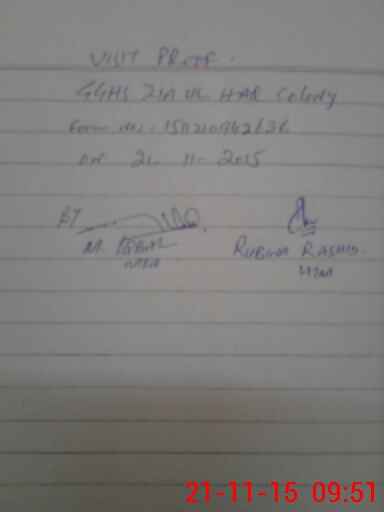 VISIT PROOF.
GGHS ZIA UL HAQ Colony
Form No:- 1511210942636
on 21-11-2015
BY
M. IQBAL
RUBINA RASHID
HM
21-11-15 09:51